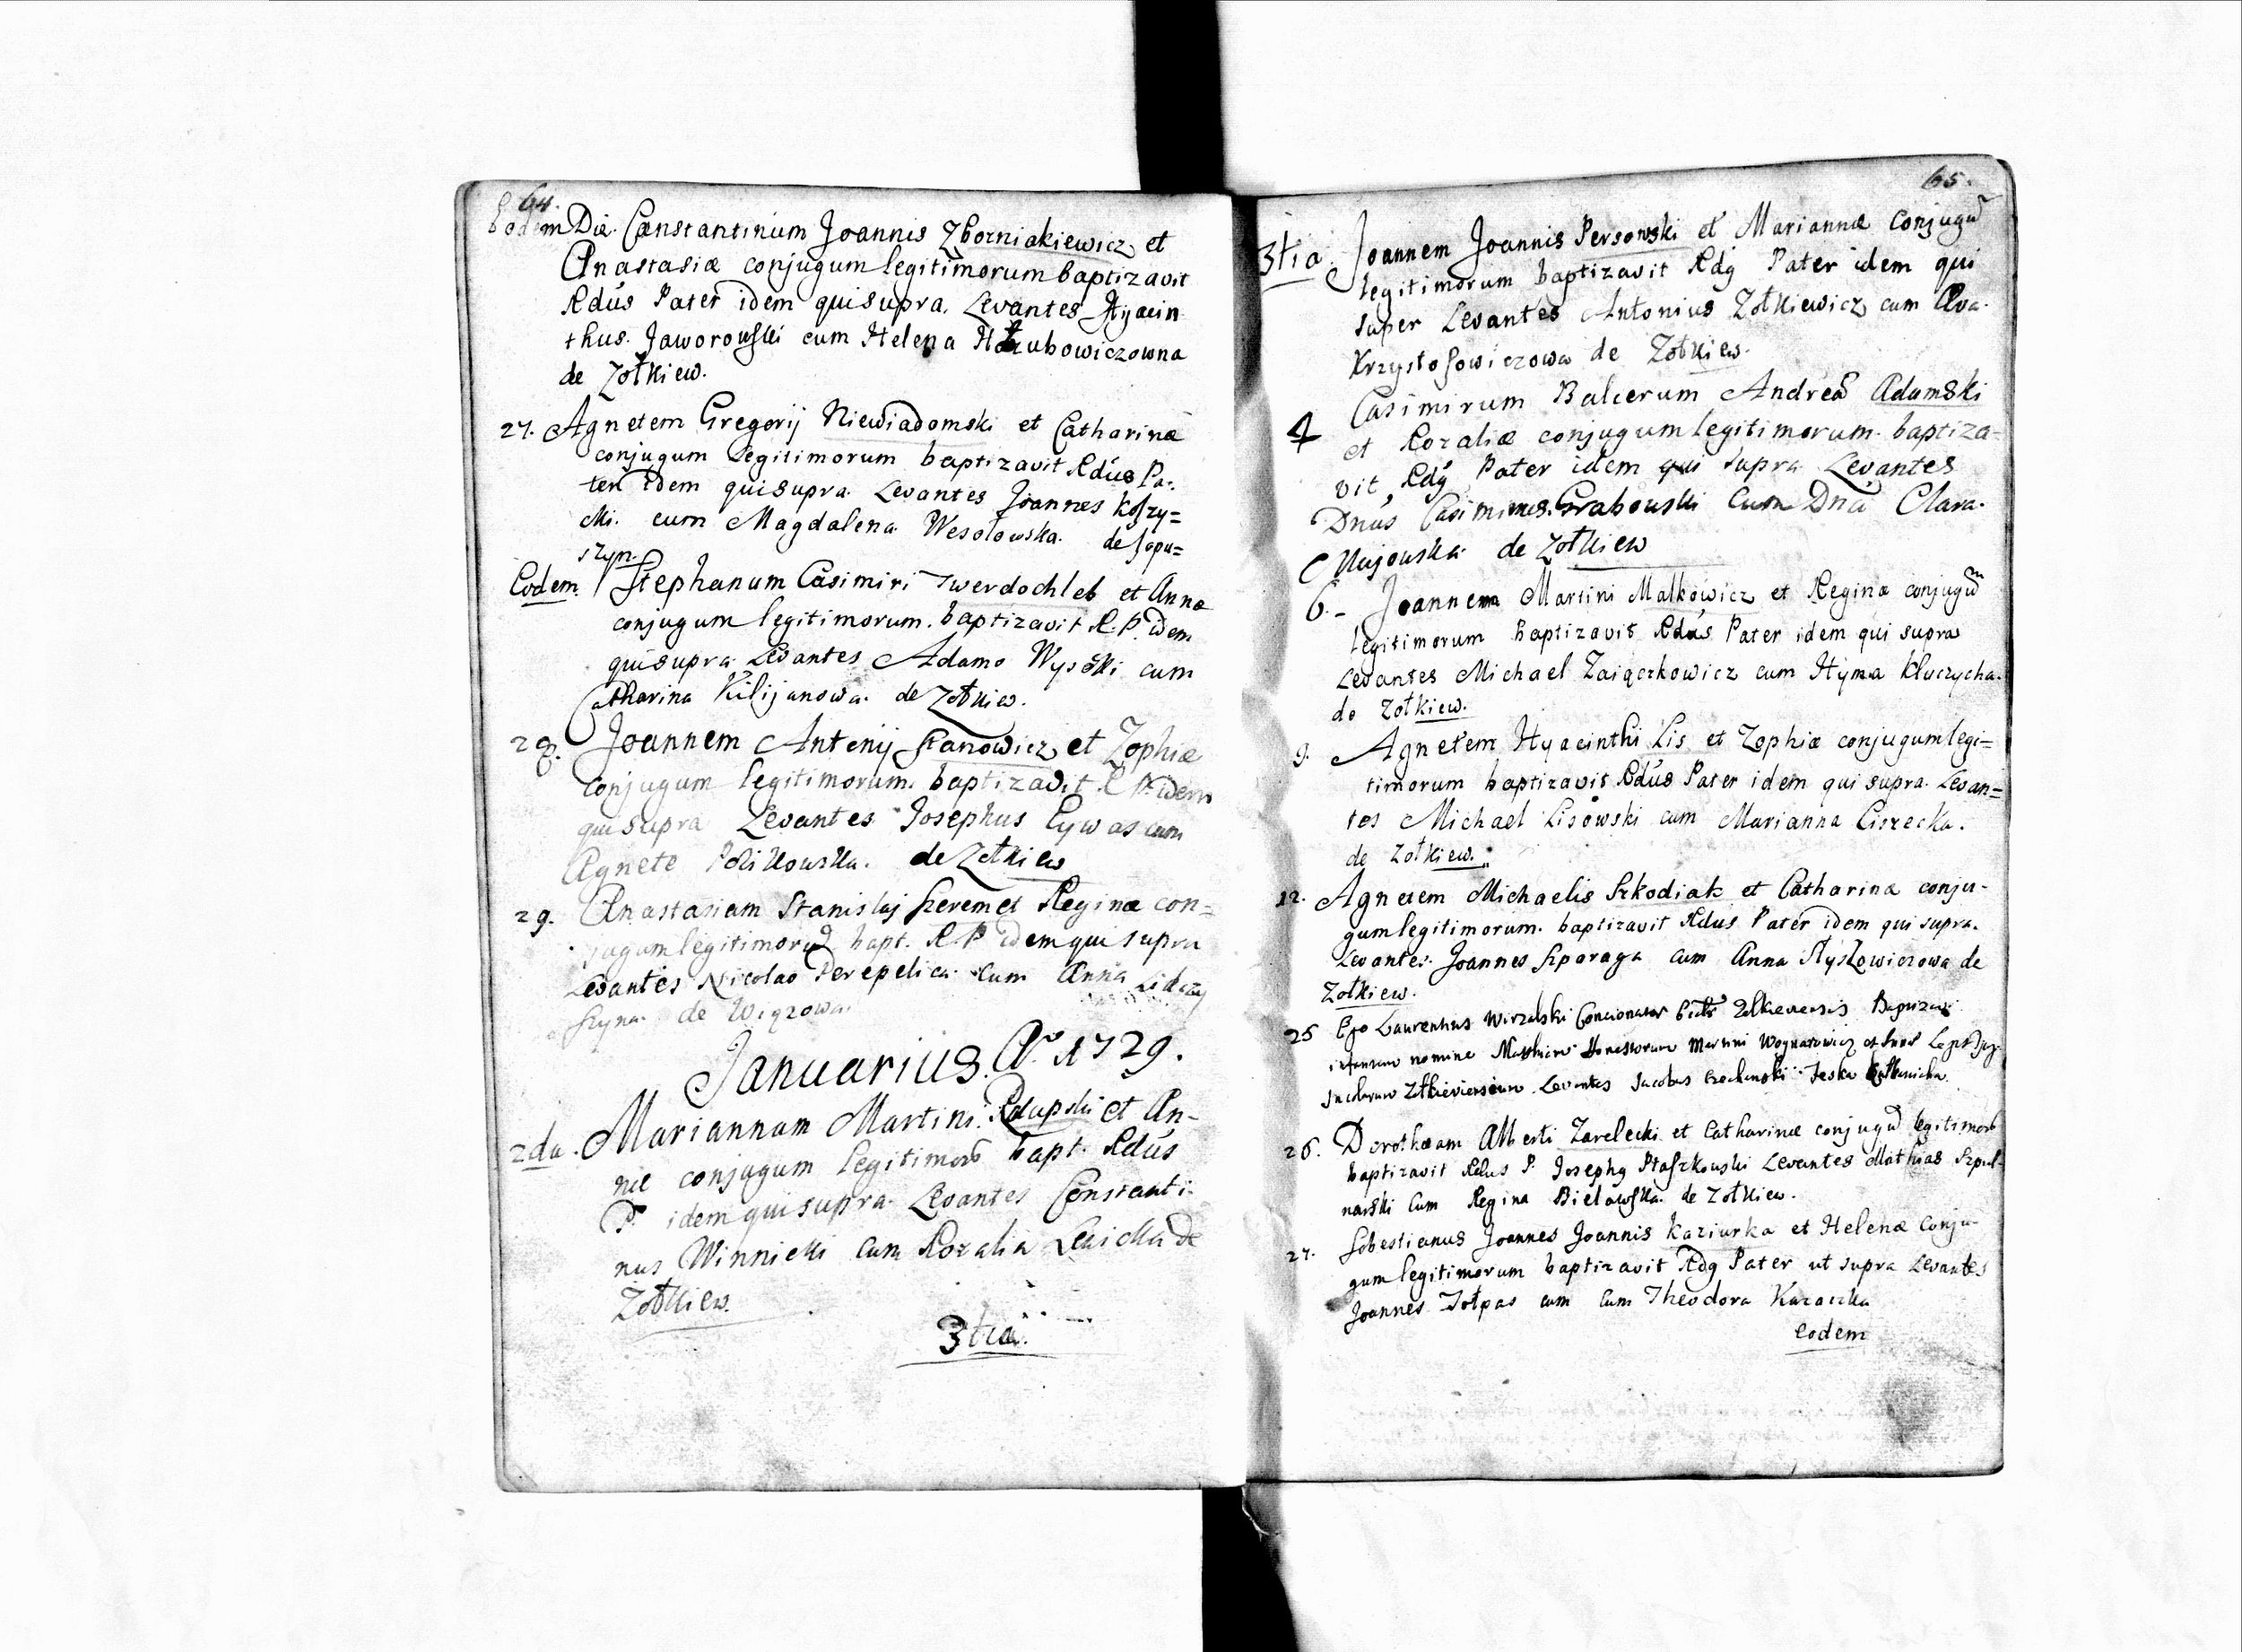 64.
Eodem Die. Constantinum Joannis Zborniakiewicz et
Anastasiæ conjugum legitimorum baptizavit
Rdus Pater idem qui supra. Levantes Hyacin
thus. Jaworowski cum Helena
de Zołkiew.
27. Agnetem Gregorij Niewiadomski et Catharinæ
conjugum legitimorum baptizavit Rdus Pa-
ter idem qui supra. Levantes Joannes
cum Magdalena Wesołowska. de Sopu=
szyn.
Eodem. Stephanum Casimiri Twerdochleb et Annæ
conjugum legitimorum. baptizavit R. P. idem
qui supra Levantes Adamo Wysocki cum
Catharina Kilijanowa. de Zołkiew.
28. Joannem Antonij et Zophiæ
conjugum legitimorum. baptizavit R P. idem
qui supra Levantes Josephus cum
Agnete de Zołkiew
29. Anastasiam Stanislaj Szeremet Reginæ con=
jugum legitimorum bapt. R. P idem qui supra
Levantes Nicolao Perepelica. cum Anna
de Wiązowa.
Januarius. Aº 1729.
2da. Mariannam Martini et An-
næ conjugum legitimorum bapt. Rdus
P. idem qui supra Levantes Constanti-
nus Winnicki cum Rozalia de
Zołkiew.
3tia.
65.
3tia. Joannem Joannis Persowski et Mariannæ Conjugum
legitimorum baptizavit Rdg Pater idem qui
super Levantes Antonius Zołkiewicz cum Eva
Krzysztofowiczowa de Zołkiew.
4 Casimirum Balcerum Andreæ Adamski
et Rozaliæ conjugum legitimorum. baptiza=
vit Rdg Pater idem qui supra Levantes
Dnus Casimirus Grabowski Cum Dna Clara.
de Zołkiew
6.- Joannem Martini Malkowicz et Reginæ conjugum
legitimorum baptizavit Rdus Pater idem qui supra
Levantes Michael Zaiączkowicz cum Hyma Kluczycha.
de Zołkiew.
9. Agnetem Hyacinthi Lis et Zophiæ conjugum legi=
timorum baptizavit Rdus Pater idem qui supra. Levan=
tes Michael Lisowski cum Marianna Ciszecka.
de Zołkiew.
12. Agnetem Michaelis Szkodiak et Catharinæ conju-
gum legitimorum. baptizavit Rdus Pater idem qui supra.
Levantes. Joannes Szparaga cum Anna de
Zołkiew.
25 Ego Laurentius Wirzalski Concionator Zolkieviensis Baptizavi
infantem nomine Mathiam Honestorum Martini Wognarowicz et
Incolarum Zołkieviensium. Levantes Jacobus
26. Dorotheam Alberti Zarelecki et Catharinæ conjugum legitimorum
baptizavit Rdus P. Josephg Ptaszkowski Levantes Mathias Szpul-
narski Cum Regina Bielawska. de Zołkiew.
27. Sobestianus Joannes Joannis Kaziurka et Helenæ Conju-
gum legitimorum baptizavit Rdg Pater ut supra Levantes
Joannes Tołpas cum Cum Theodora
eodem